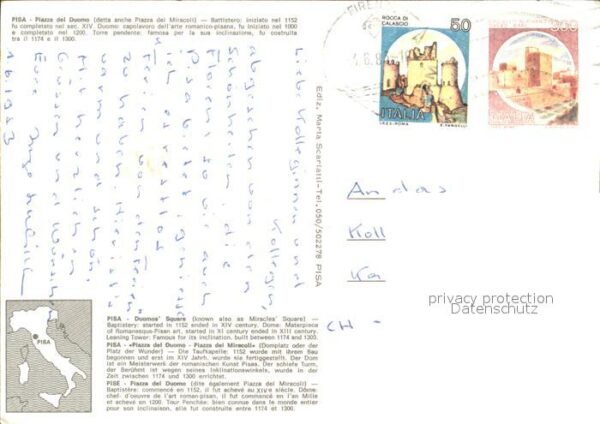 PISA - Piazza del Duomo (detta anche Piazza dei Miracoli) — Battistero: iniziato nel 1152
fu completato nel sec. XIV. Duomo: capolavoro dell'arte romanico-pisana, fu iniziato nel 1000
e completato nel 1200. Torre pendente: famosa per la sua inclinazione, fu costruita
tra il 1174 e il 1300.
ROCCA DI
CALASCIO
50
ITALIA
I.P.Z.S. - ROMA
E. VANGELLI
ITALIA
Ediz. Marta Scarlatti - Tel. 050/502278 PISA
Liebe Kolleginnen und
Kollegen,
abgesehen von den
Schönheiten, die
Florenz so wie auch
Pisa bietet, genießen
wir
Ferien vom
zu haben. Hier ist es
warm und schön.
Mit herzlichen
Grüssen und Wünschen
Eure
1.6.1983
An das
Koll
Ka
CH -
privacy protection
Datenschutz
PISA
PISA - Duomos' Square (known also as Miracles' Square) —
Baptistery: started in 1152 ended in XIV century. Dome: Materpiece
of Romanesque-Pisan art, started in XI century ended in XIII century.
Leaning Tower: Famous for its inclination, built between 1174 and 1300.
PISA - «Piazza del Duomo - Piazza dei Miracoli» (Domplatz oder der
Platz der Wunder) — Die Taufkapelle: 1152 wurde mit ihrem Bau
begonnen und im XIV Jahrh. wurde sie fertiggestellt. Der Dom
ist ein Meisterwerk der romanischen Kunst Pisas. Der schiefe Turm,
der Berühmt ist wegen seines Inklinationswinkels, wurde in der
Zeit zwischen 1174 und 1300 errichtet.
PISE - Piazza del Duomo (dite également Piazza dei Miracoli) —
Baptistère: commencé en 1152, il fut achevé au XIVe siècle. Dôme:
chef-d'oeuvre de l'art roman-pisan, il fut commencé en l'an Mille
et achevé en 1200. Tour Penchée: bien connue dans le monde entier
pour son inclinaison, elle fut construite entre 1174 et 1300.